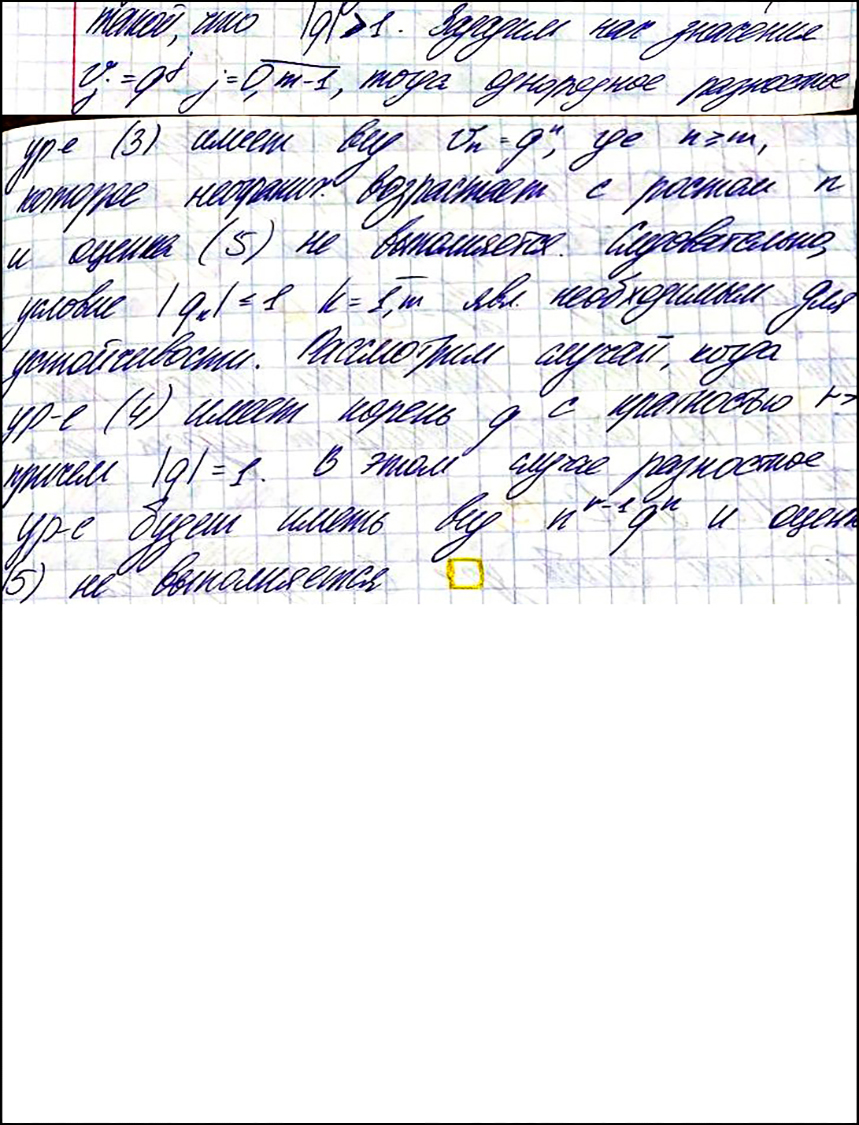 такой, что |q| > 1. Зададим нач значения
v_j = q^j j = 0, m-1, тогда однородное разностное
ур-е (3) имеет вид v_n = q^n, где n ≥ m,
которое неогранич. возрастает с ростом n
и оценка (5) не выполняется. Следовательно,
условие |q_k| ≤ 1 k = 1, m явл. необходимым для
устойчивости. Рассмотрим случай, когда
ур-е (4) имеет корень q с кратностью r>
причем |q| = 1. В этом случае разностное
ур-е будет иметь вид n^{r-1} q^n и оценк
5) не выполняется